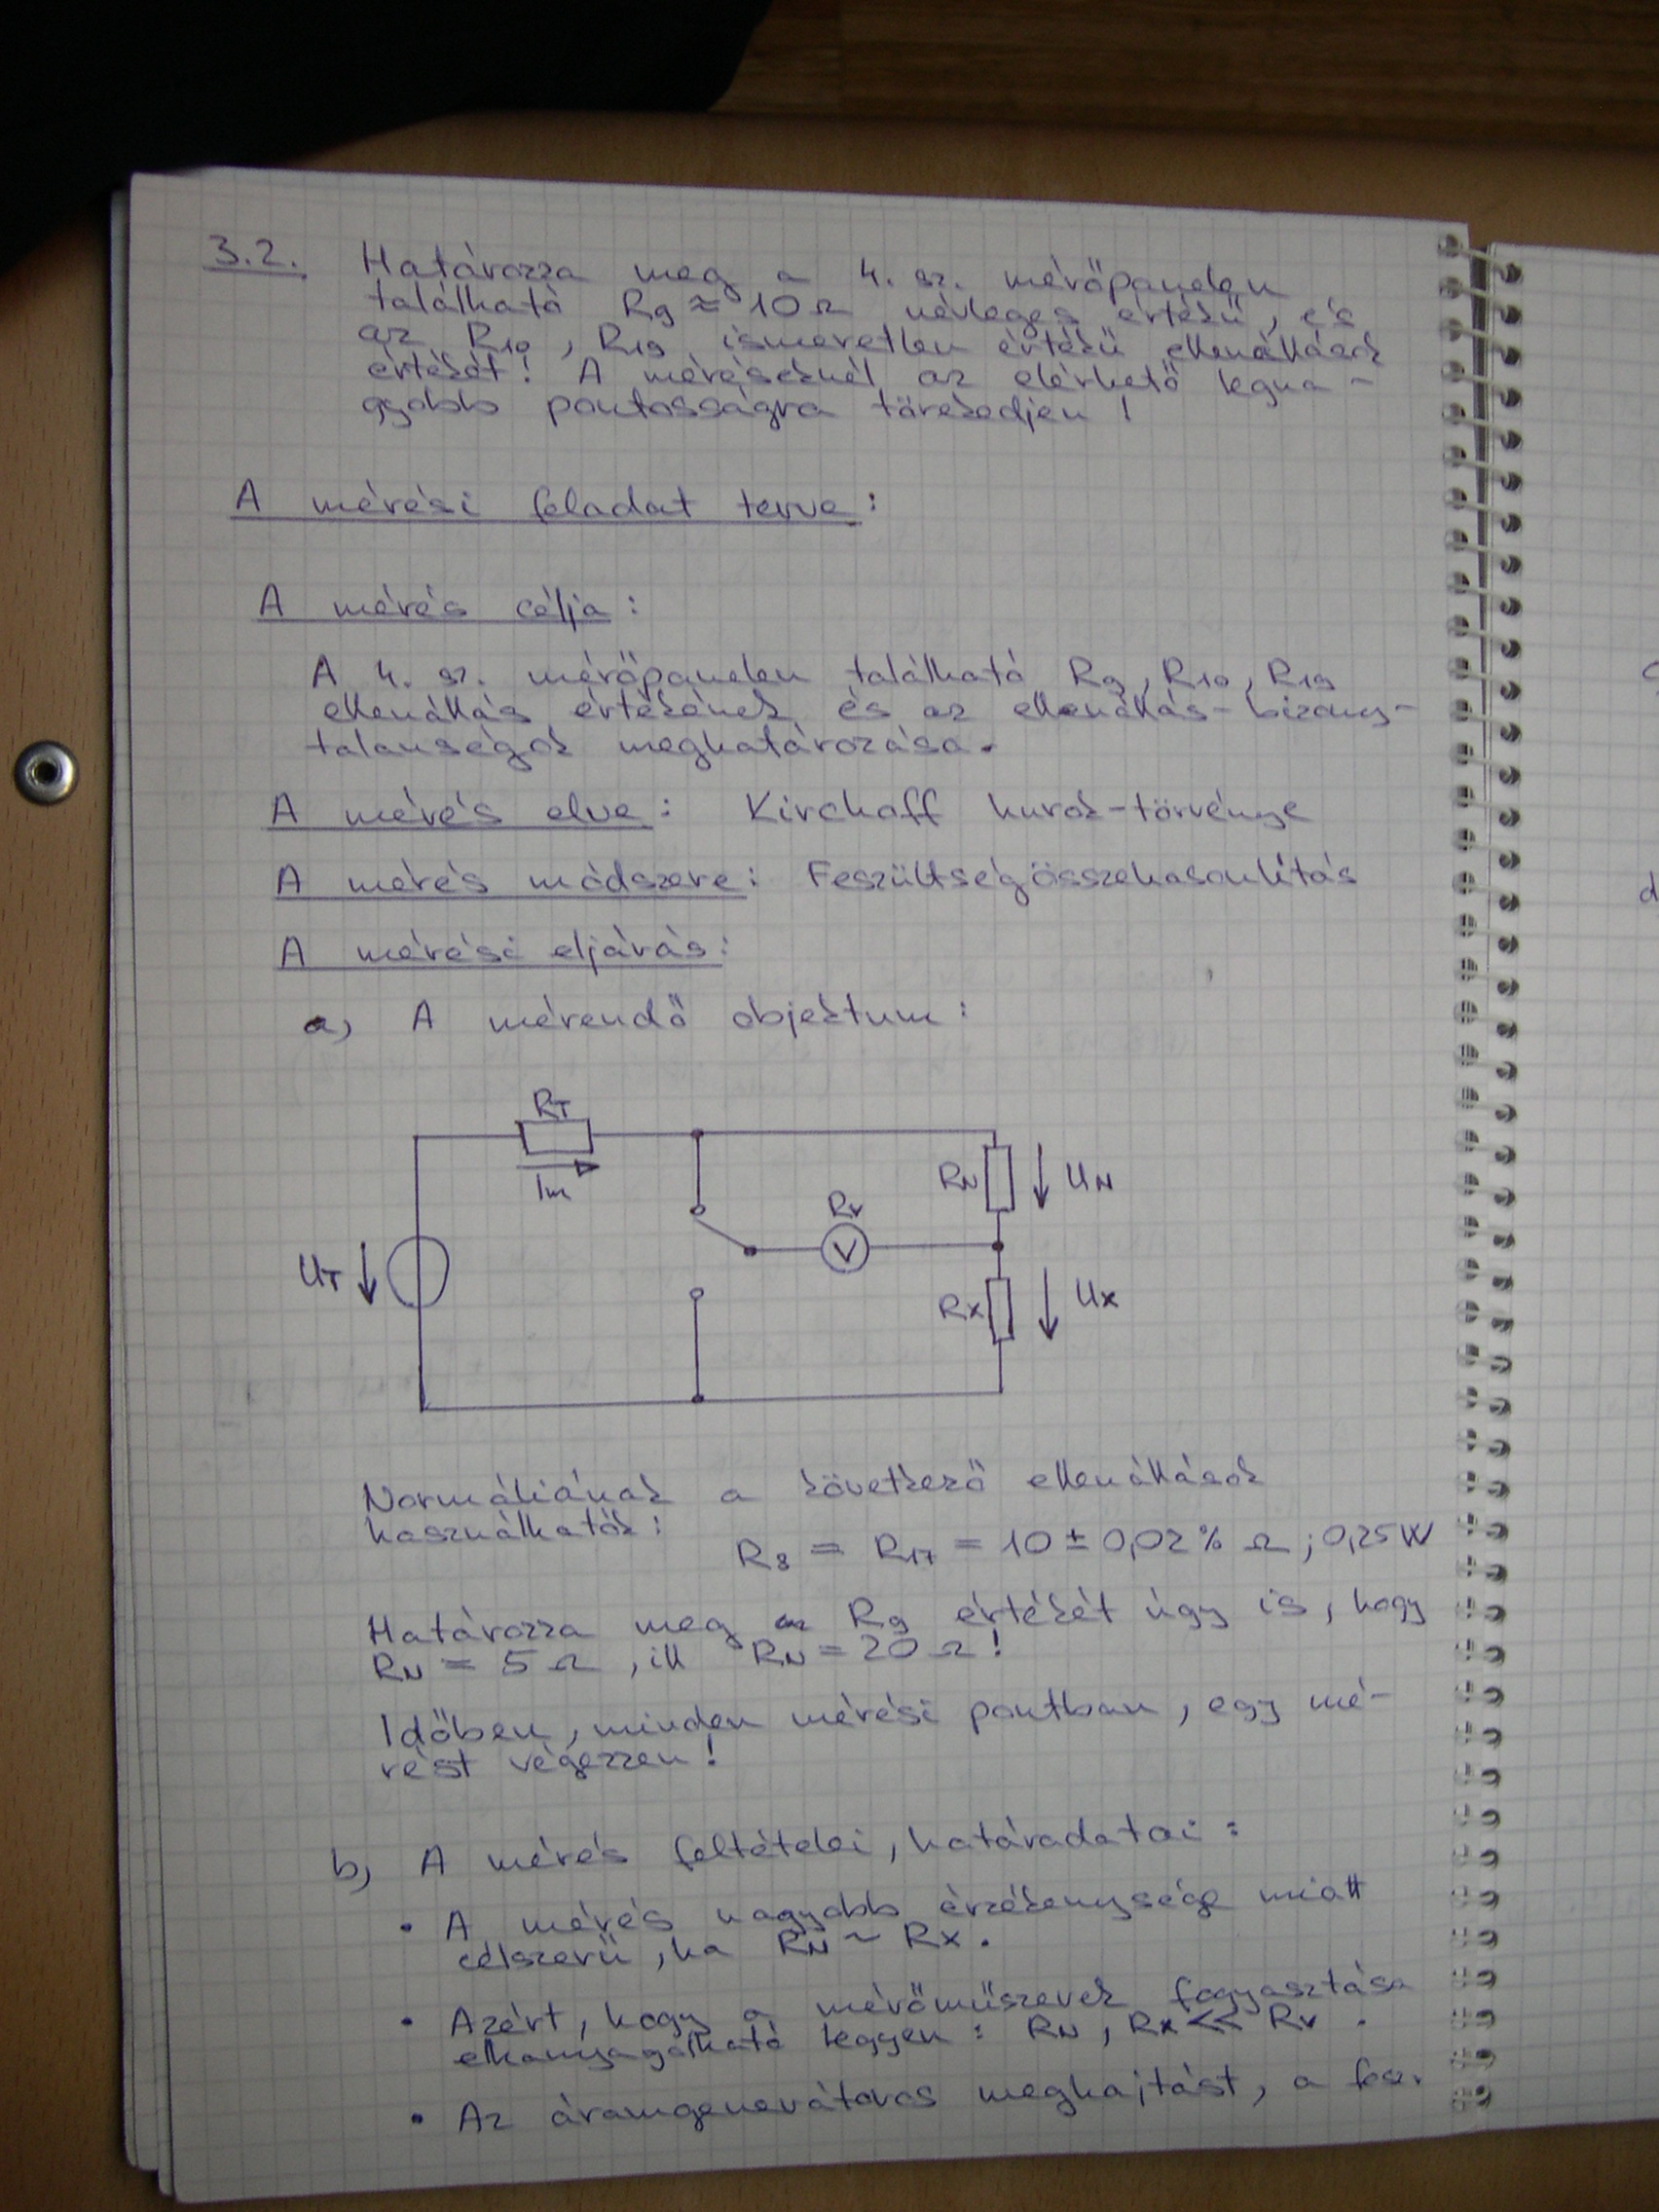 3.2. Határozza meg a 4. sz. mérőpanelen
található R9 ≈ 10Ω névleges értékű, és
az R10, R19 ismeretlen értékű ellenállások
értékét! A méréseknél az elérhető legna-
gyobb pontosságra törekedjen!
A mérési feladat terve:
A mérés célja:
A 4. sz. mérőpanelen található R9, R10, R19
ellenállás értékének és az ellenállás-bizony-
talanságok meghatározása.
A mérés elve: Kirchoff hurok-törvénye
A mérés módszere: Feszültségösszehasonlítás
A mérési eljárás:
a, A mérendő objektum:
RT
Im
RN
UN
RV
V
UT
RX
UX
Normáliának a következő ellenállások
használhatók:
R8 = R17 = 10 ± 0,02% Ω; 0,25W
Határozza meg az R9 értékét úgy is, hogy
RN = 5Ω, ill RN = 20Ω!
Időben, minden mérési pontban, egy mé-
rést végezzen!
b, A mérés feltételei, határadatai:
• A mérés nagyobb érzékenysége miatt
célszerű, ha RN ~ RX.
• Azért, hogy a mérőműszerek fogyasztása
elhanyagolható legyen: RN, RX << RV.
• Az áramgenerátoros meghajtást, a fesz.